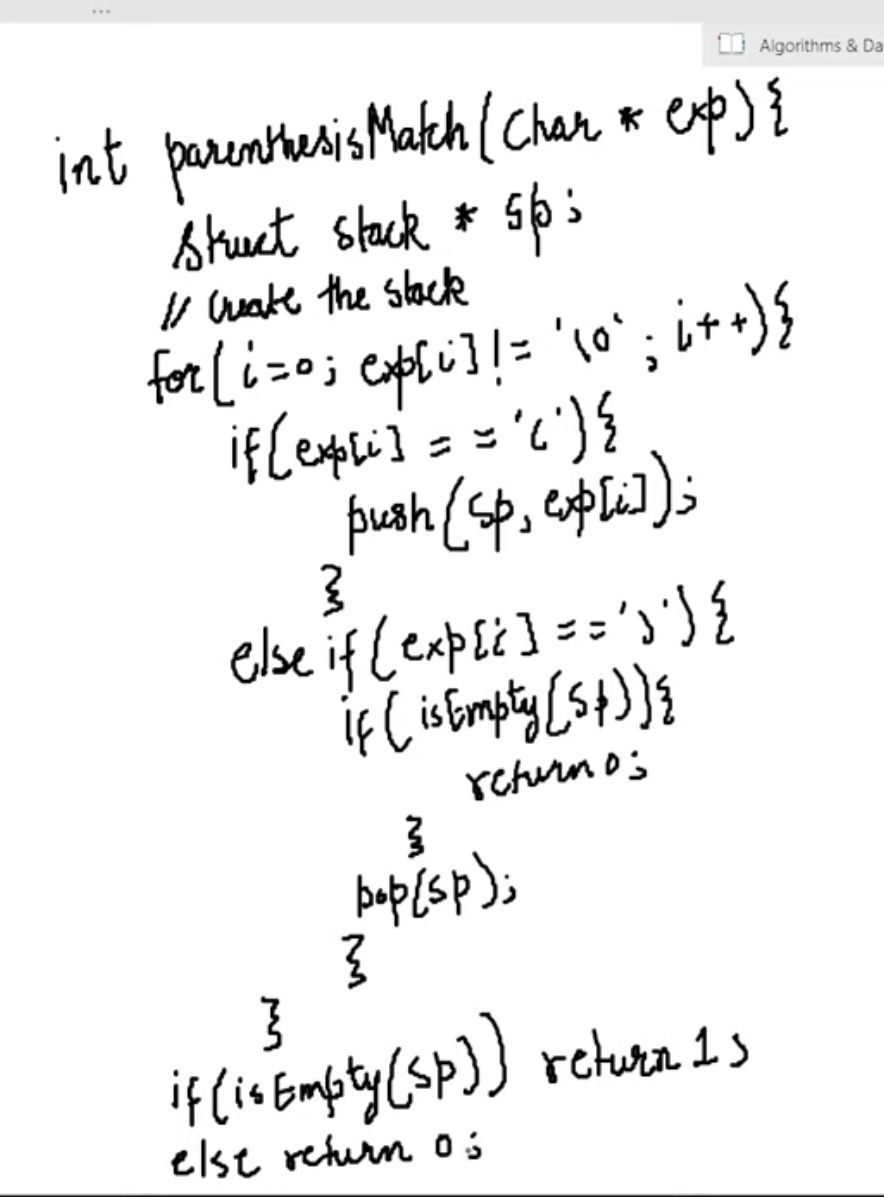 ...
Algorithms & Da
int parenthesisMatch(char * exp){
struct stack * sp;
// Create the stack
for(i=0; exp[i]!='\0'; i++){
if(exp[i] == '('){
push(sp, exp[i]);
}
else if(exp[i] == ')'){
if(isEmpty(sp)){
return 0;
}
pop(sp);
}
}
if(isEmpty(sp)) return 1;
else return 0;